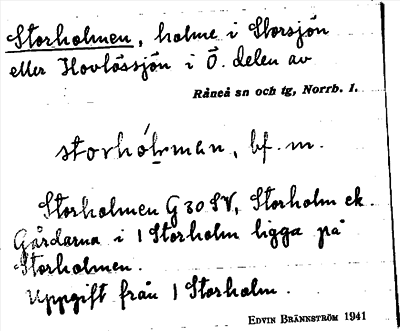 Storholmen, holme i Storsjön
eller Hovlössjön i Ö. delen av
Råneå sn och tg, Norrb. l.
storhólman, bf. m.
Storholmen G 30 SV, Storholm ek.
Gårdarna i 1 Storholm ligga på
Storholmen.
Uppgift från 1 Storholm.
EDVIN BRÄNNSTRÖM 1941